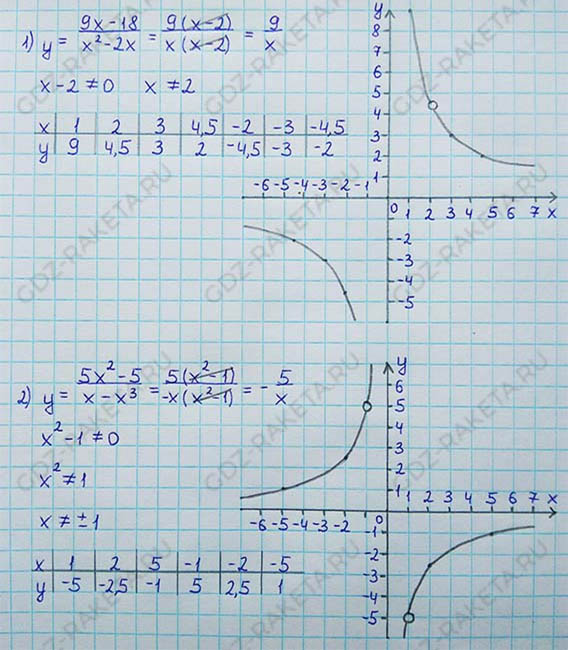 1) y = 9x-18 / x²-2x = 9(x-2) / x(x-2) = 9 / x
x-2≠0 x≠2
x 1 2 3 4,5 -2 -3 -4,5
y 9 4,5 3 2 -4,5 -3 -2
y
8
7
6
5
4
3
2
1
-6 -5 -4 -3 -2 -1
0 1 2 3 4 5 6 7 x
-2
-3
-4
-5
2) y = 5x²-5 / x-x³ = 5(x²-1) / -x(x²-1) = - 5 / x
x²-1≠0
x²≠1
x≠±1
x 1 2 5 -1 -2 -5
y -5 -2,5 -1 5 2,5 1
y
6
5
4
3
2
1
1 2 3 4 5 6 7 x
-6 -5 -4 -3 -2 0
-1
-2
-3
-4
-5
GDZ-RAKETA.RU